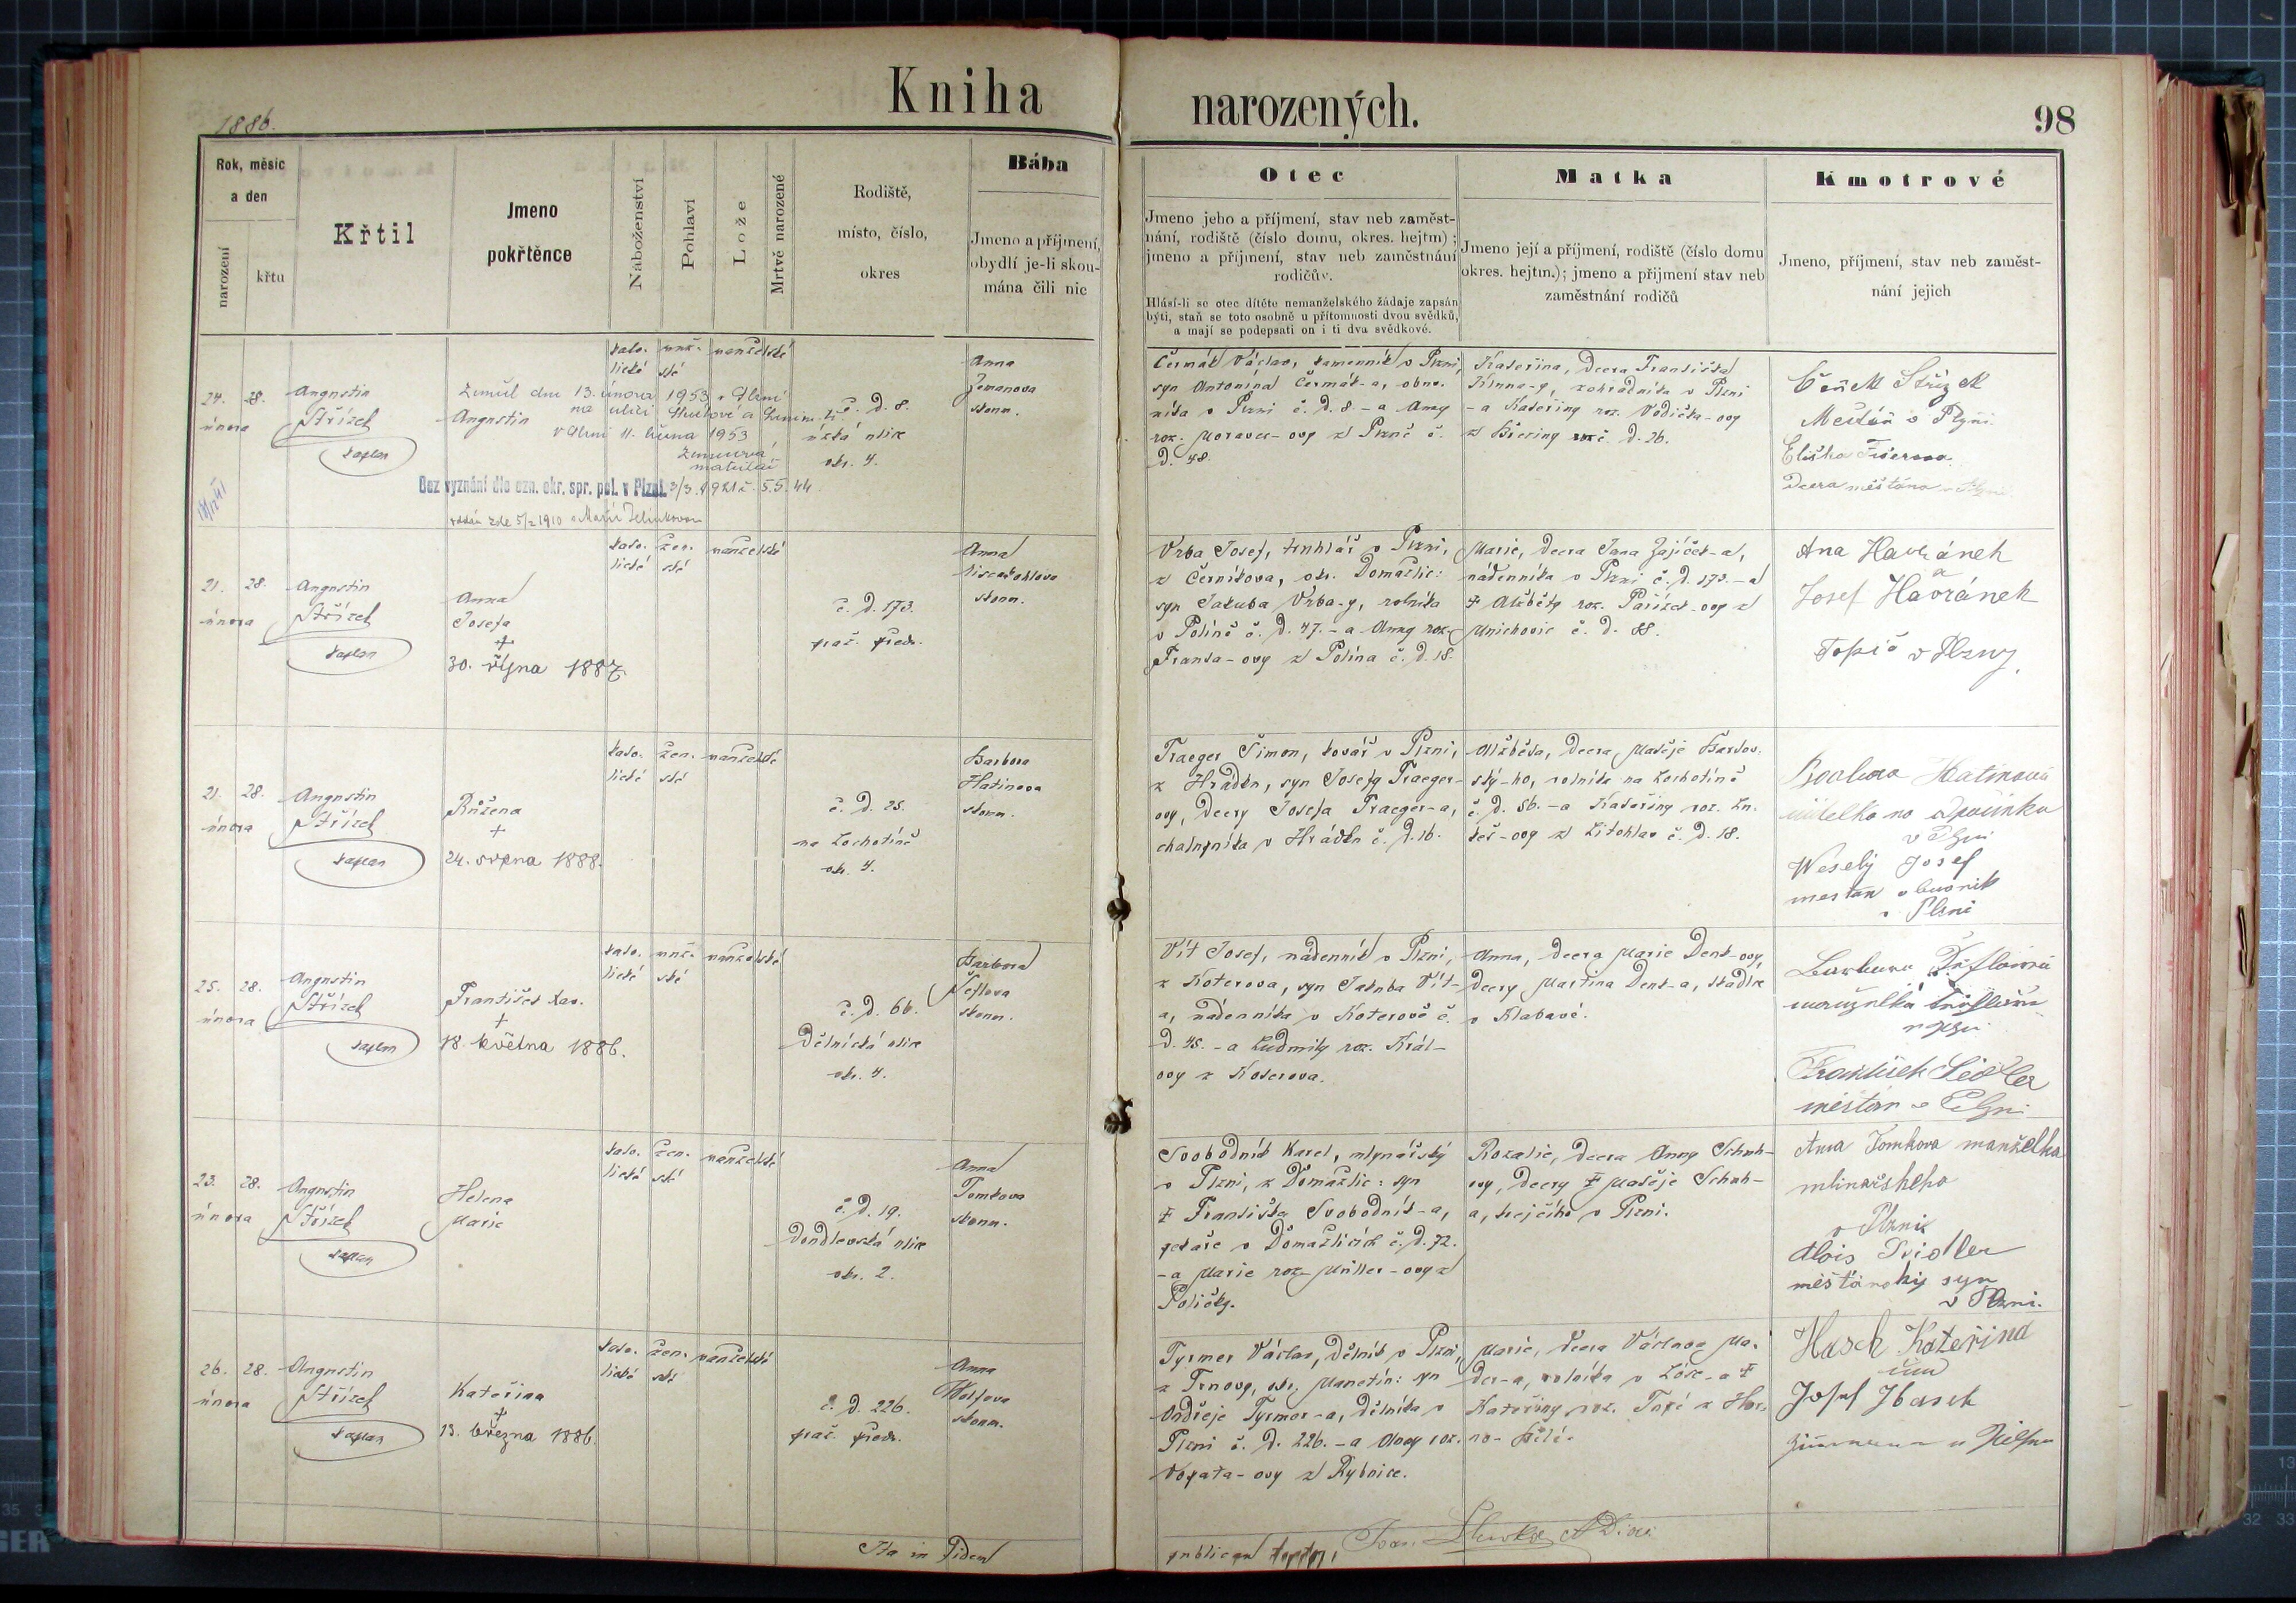 Kniha narozených.
1886.
98
Rok, měsíc
a den
narození
křtu
Křtil
Jmeno
pokřtěnce
Náboženství
Pohlaví
Lože
Mrtvě narozené
Rodiště,
místo, číslo,
okres
Bába
Jmeno a příjmení,
obydlí je-li skou-
mána čili nic
Otec
Jmeno jeho a příjmení, stav neb zaměst-
nání, rodiště (číslo domu, okres. hejtm) ;
jmeno a příjmení, stav neb zaměstnání
rodičův.
Hlásí-li se otec dítěte nemanželského žádaje zapsán
býti, staň se toto osobně u přítomnosti dvou svědků,
a mají se podepsati on i ti dva svědkové.
Matka
Jmeno její a příjmení, rodiště (číslo domu
okres. hejtm.); jmeno a příjmení stav neb
zaměstnání rodičů
Kmotrové
Jmeno, příjmení, stav neb zaměst-
nání jejich
24. 28.
února
Augustin
Střízek
kaplan
Zemřel dne 13. února 1953 v Plzni
Augustin
v Plzni 11. 1953
Bez vyznání dle ozn. okr. spr. pol. v Plzni 3/3 1921 č. 5.5.44.
oddán zde 5/2 1910 s Marií Jelínkovou
kato- muž- manželské
lické ské
č. D. 8.
ulice
okr. 4.
Anna
Zemanova
skoum.
Čermák Václav, kamenník v Plzni,
syn Antonína Čermák-a, obuv-
níka v Plzni č. D. 8. - a Anny
roz. Moravec-ovy z Plzně č.
D. 48.
Kateřina, dcera Františka
zahradníka v Plzni
- a Kateřiny roz. Vodička-ovy
z č. D. 26.
Čeněk Střízek
Mešťan v Plzni
Eliška
Dcera měšťana v Plzni
21. 28.
února
Augustin
Střízek
kaplan
Anna
Josefa
+
30. října 1887
kato- žen- manželské
lické ské
č. D. 173.
praž. předm.
Anna
skoum.
Vrba Josef, truhlář v Plzni,
z Černíkova, okr. Domažlic:
syn Jakuba Vrba-y, rolníka
v Políně č. D. 47. - a Anny roz.
Franta-ovy z Polína č. D. 18.
Marie, dcera Jana Zajíček-a,
nádenníka v Plzni č. D. 173. - a
Alžběty roz. Pařízek-ovy z
Mnichovic č. D. 88.
Ana Havránek
a
Josef Havránek
Topič v Plzny
21. 28.
února
Augustin
Střízek
kaplan
Růžena
+
24. srpna 1888.
kato- žen- manželské
lické ské
č. D. 25.
na Lochotíně
okr. 4.
Barbora
Hatinova
skoum.
Traeger Šimon, kovář v Plzni,
z Hrádku, syn Josefy Traeger-
ovy, dcery Josefa Traeger-a,
chalupníka v Hrádku č. D. 16.
Alžběta, dcera Matěje
ský-ho, rolníka na Lochotíně
č. D. 56. - a Kateřiny roz.
-ovy z Litohlav č. D. 18.
v Plzni
Weselý Josef
mešťan obuvník
v Plzni
25. 28.
února
Augustin
Střízek
kaplan
František Xav.
+
18. května 1886.
kato- muž- manželské
lické ské
č. D. 66.
Dělnická ulice
okr. 4.
Barbora
skoum.
Vít Josef, nádenník v Plzni,
z Koterova, syn Jakuba Vít-
a, nádenníka v Koterově č.
D. 45. - a Ludmily roz. Král-
ovy z Koterova.
Anna, dcera Marie Denk-ovy,
dcery Martina Denk-a,
v Klabavě.
Barbora
manželka
v Plzni
František
měšťan v Plzni
23. 28.
února
Augustin
Střízek
kaplan
Helena
Marie
kato- žen- manželské
lické ské
č. D. 19.
Doudlevská ulice
okr. 2.
Anna
Tomkova
skoum.
Svobodník Karel, mlynářský
v Plzni, z Domažlic: syn
Františka Svobodník-a,
pekaře v Domažlicích č. D. 72.
- a Marie roz. Müller-ovy z
Poličky.
Rozalie, dcera Anny Schuh-
ovy, dcery Matěje Schuh-
a, krejčího v Plzni.
Anna Tomkova manželka
mlinařskeho
v Plzni
Alois
měšťanský syn
v Plzni.
26. 28.
února
Augustin
Střízek
kaplan
Kateřina
+
13. března 1886.
kato- žen- manželské
lické ské
č. D. 226.
praž. předm.
Anna
skoum.
Tyrmer Václav, dělník v Plzni,
z Trnovy, okr. Manetín: syn
Ondřeje Tyrmer-a, dělníka v
Plzni č. D. 226. - a roz.
-ovy z Rybnice.
Marie, dcera Václava Ma-
der-a, rolníka v
Kateřiny roz.
Hasch Kateřina
und
Josef Hasch
in Pilsen
Ita in fidem
publicam